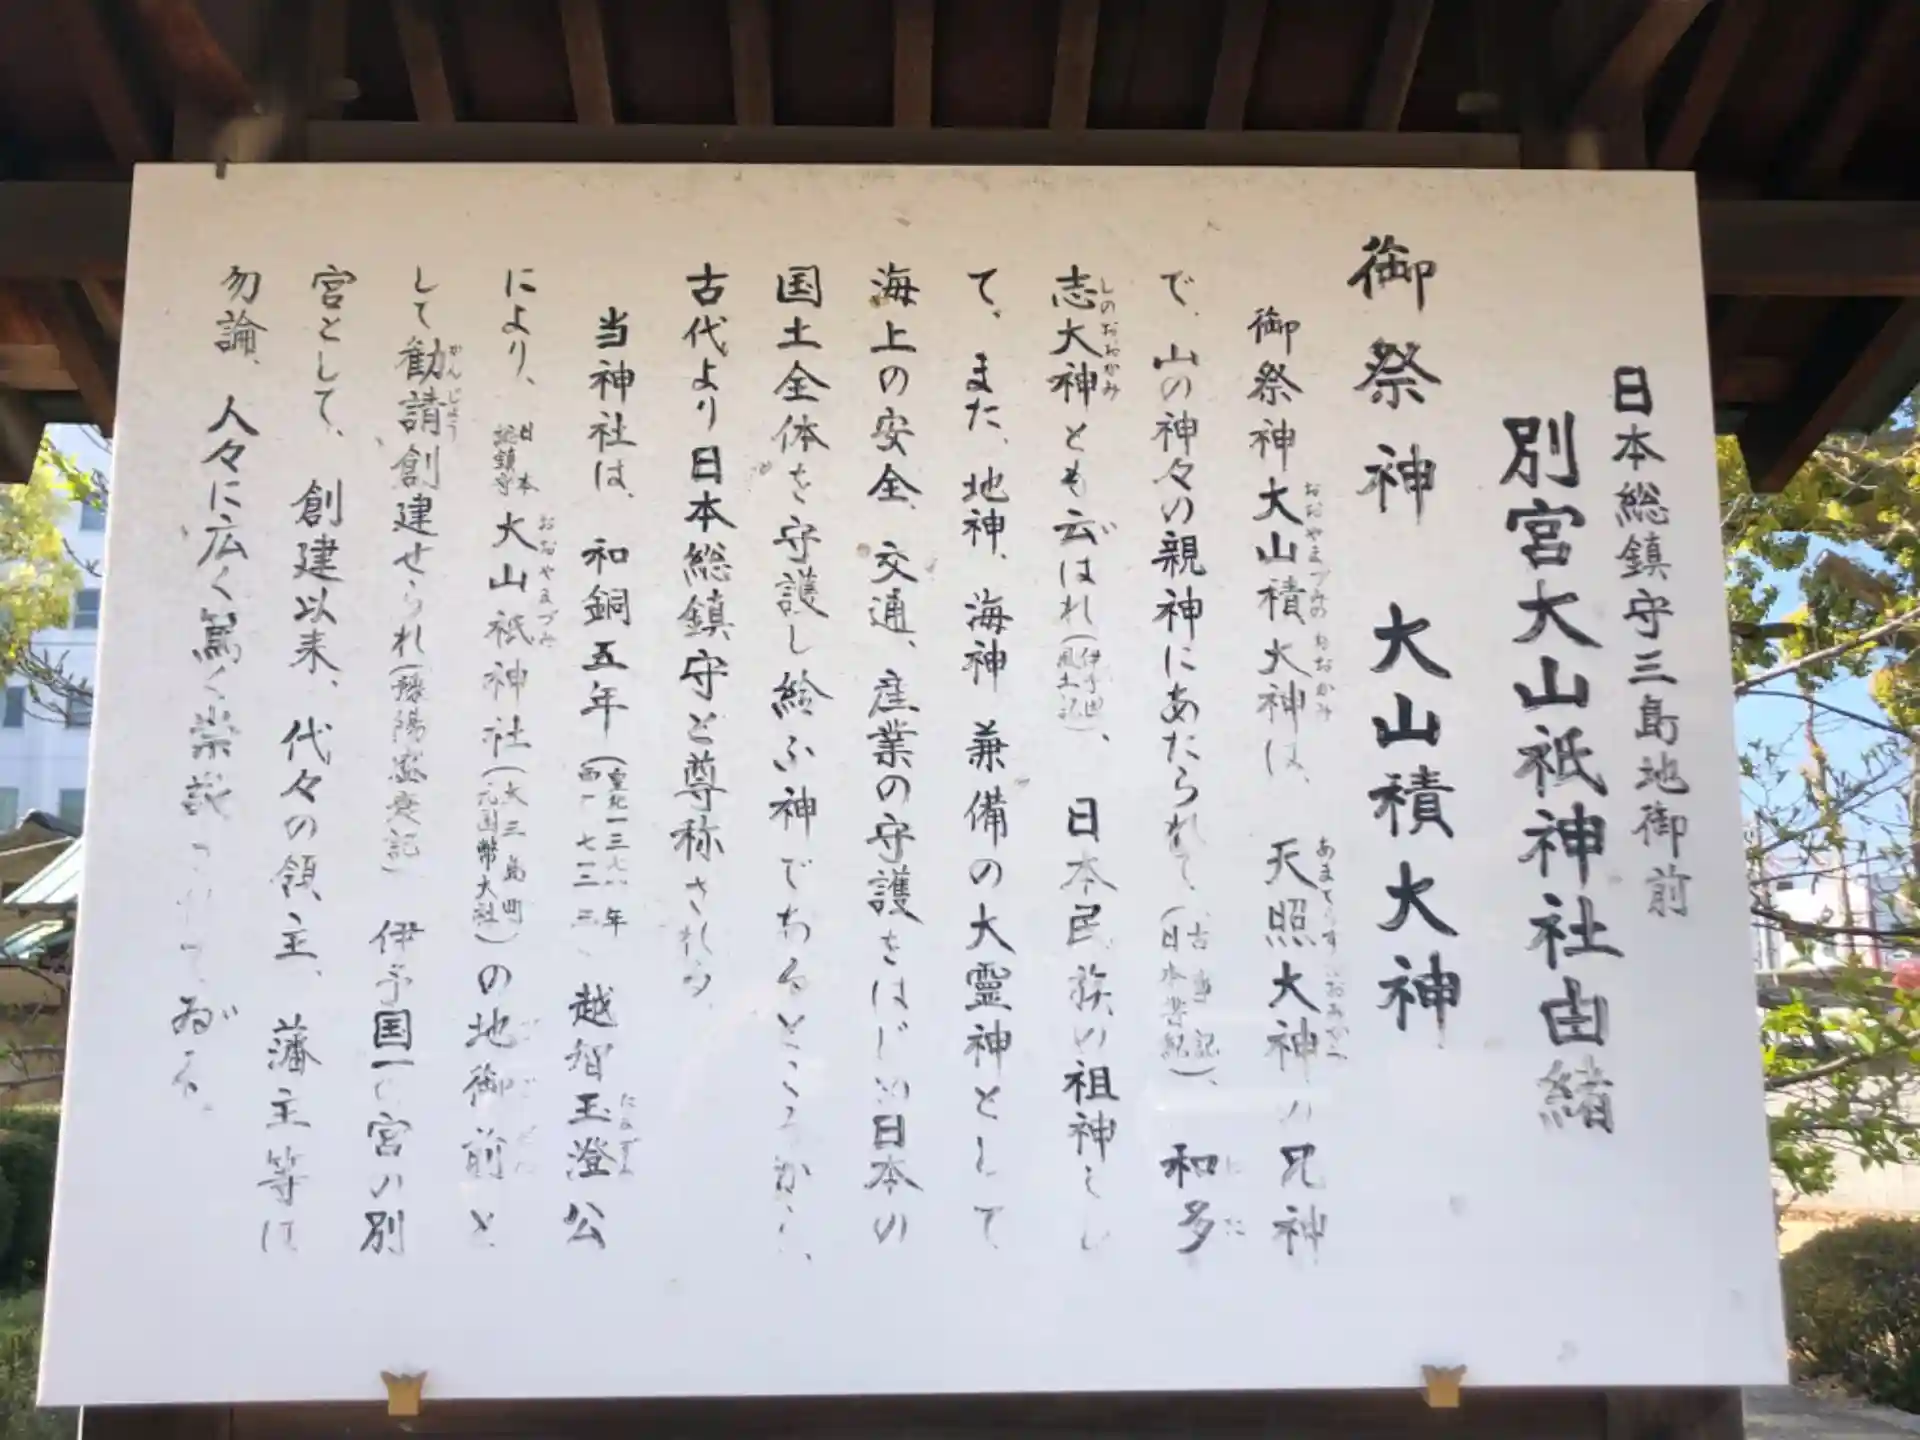 日本総鎮守三島地御前
別宮大山祇神社由緒
御祭神 大山積大神
御祭神大山積大神は、天照大神の兄神
おおやまづみのおおかみ
あまてらすおおみかみ
で、山の神々の親神にあたられて(古事記 日本書紀)、和多
わた
志大神とも云はれ(伊予国 風土記)、日本民族の祖神とし
しのおおかみ
て、また、地神、海神 兼備の大霊神として
海上の安全、交通、産業の守護をはじめ日本の
国土全体を守護し給ふ神であるところから、
古代より日本総鎮守と尊称される。
当神社は、和銅五年(皇紀一三七二年 西暦七一二)越智玉澄公
により、日本総鎮守大山祇神社(大三島町 元国幣大社)の地御前と
おおやまづみ
して勧請創建せられ(予陽盛衰記)伊予国一の宮の別
かんじょう
宮として、創建以来、代々の領主、藩主等は
勿論、人々に広く篤く崇